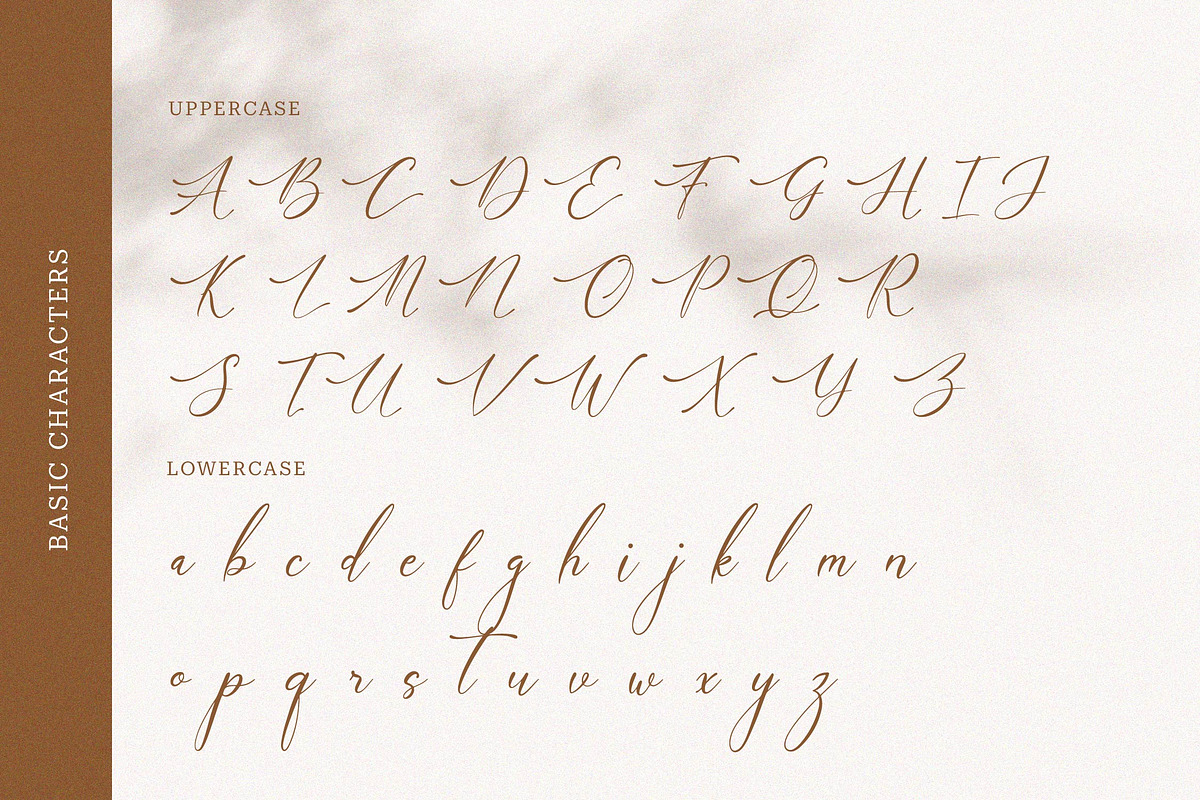 BASIC CHARACTERS
UPPERCASE
A B C D E F G H I J
K L M N O P Q R
S T U V W X Y Z
LOWERCASE
a b c d e f g h i j k l m n
o p q r s t u v w x y z